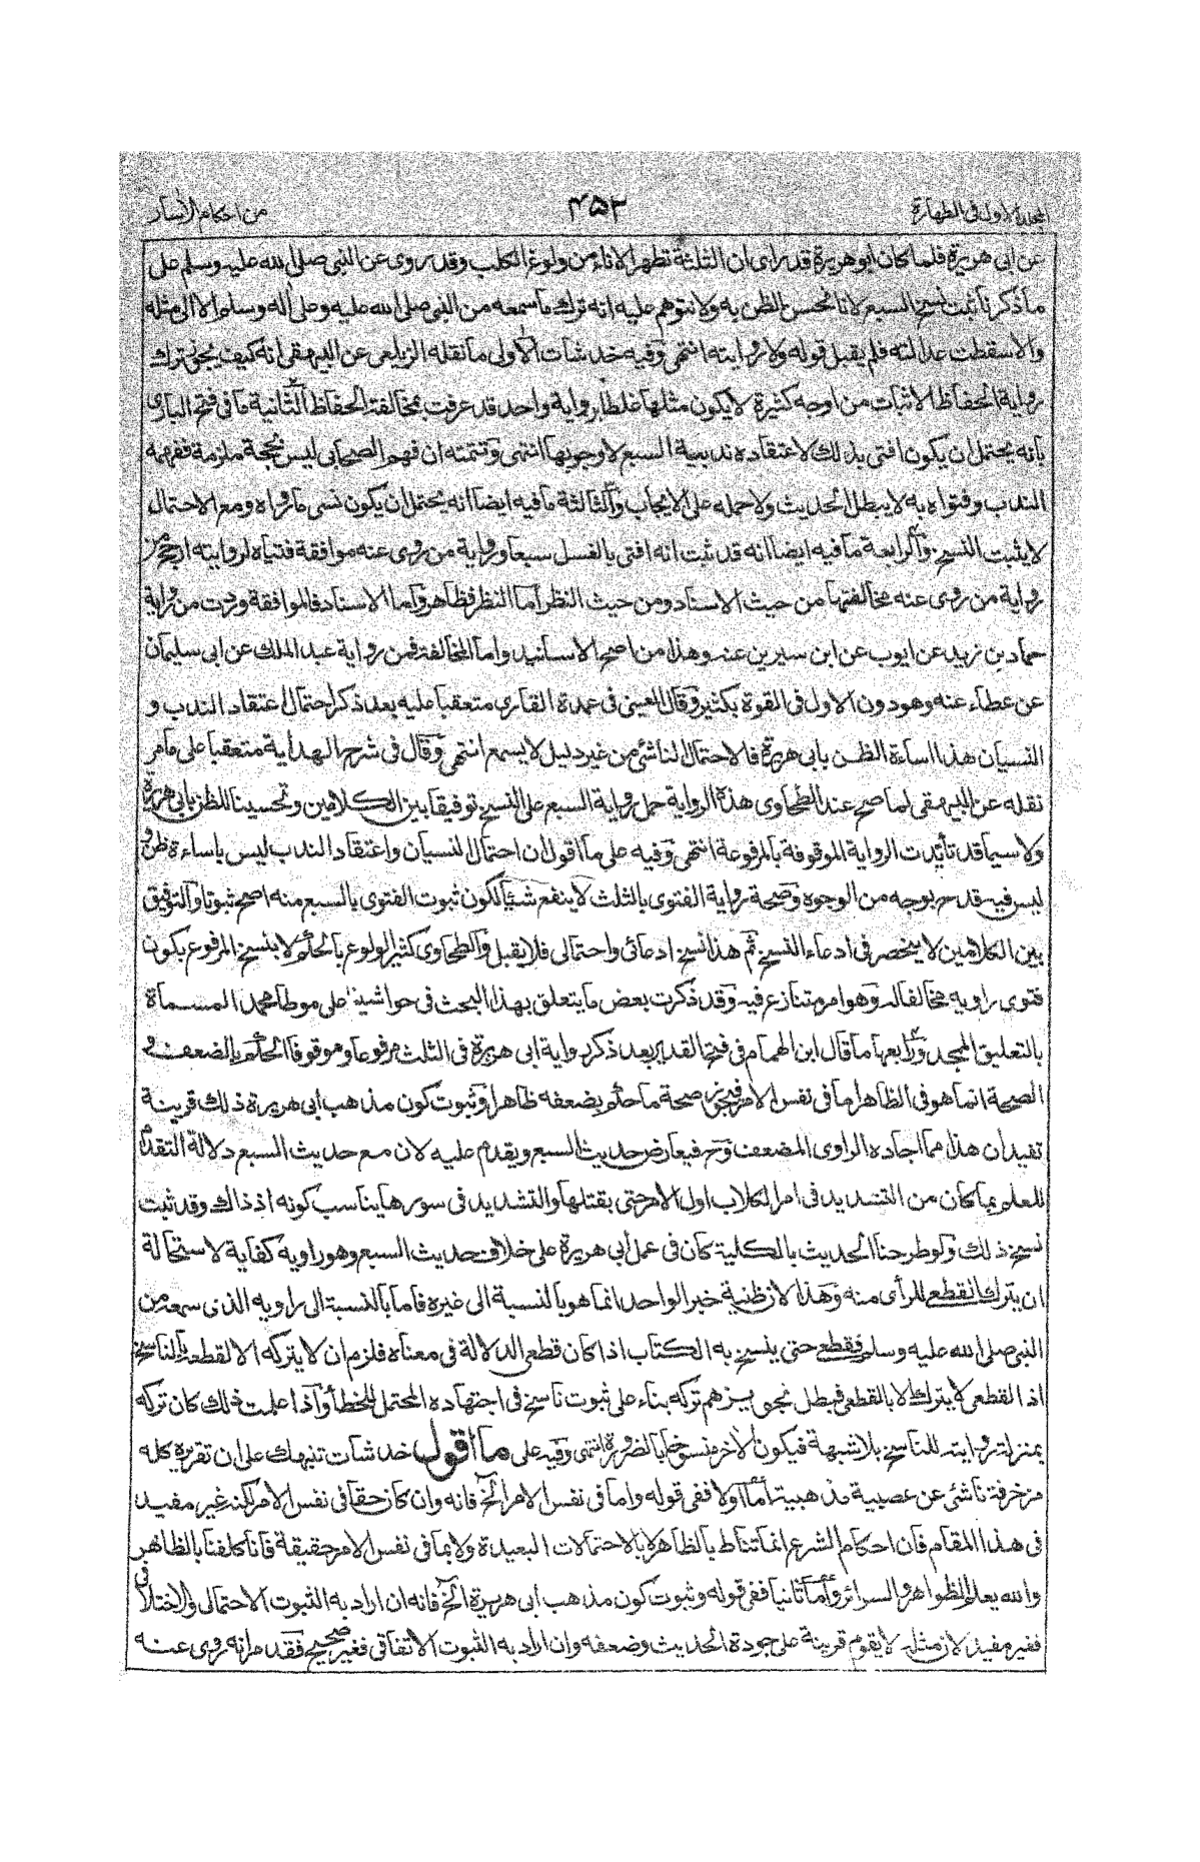 المجلد الاول فى الطهارة ۴۵۳ من احكام الأسار
عن ابى هريرة فلما كان ابو هريرة قد راى ان الثلثة تطهر الاناء من ولوغ الكلب وقد روى عن النبى صلى الله عليه وسلم على
ما ذكرنا ثبت نسخ السبع لانا نحسن الظن به ولا نتوهم عليه انه ترك ما سمعه من النبى صلى الله عليه وعلى اله وسلم الا الى مثله
والا سقطت عدالته فلم يقبل قوله ولا روايته انتهى وفيه خدشات الاولى ما نقله الزيلعى عن البيهقى انه كيف يجوز ترك
رواية الحفاظ الاثبات من اوجه كثيرة لا يكون مثلها غلطا برواية واحد قد عرفت بمخالفة الحفاظ الثانية ما فى فتح البارى
بانه يحتمل ان يكون افتى بذلك لاعتقاده ندبية السبع لا وجوبها انتهى وتتمته ان فهم الصحابى ليس بحجة ملزمة ففهمه
الندب وفتواه به لا يبطل الحديث ولا حمله على الايجاب والثالثة ما فيه ايضا انه يحتمل ان يكون نسى ما رواه ومع الاحتمال
لا يثبت النسخ والرابعة ما فيه ايضا انه قد ثبت انه افتى بالغسل سبعا ورواية من روى عنه موافقة فتياه لروايته ارجح من
رواية من روى عنه مخالفتها من حيث الاسناد ومن حيث النظر اما النظر فظاهر واما الاسناد فالموافقة وردت من رواية
حماد بن زيد عن ايوب عن ابن سيرين عنه وهذا من اصح الاسانيد واما المخالفة فمن رواية عبد الملك عن ابى سليمان
عن عطاء عنه وهو دون الاول فى القوة بكثير وقال العينى فى عمدة القارى متعقبا عليه بعد ذكر احتمال اعتقاد الندب و
النسيان هذا اساءة الظن بابى هريرة فالاحتمال الناشئ من غير دليل لا يسمع انتهى وقال فى شرح الهداية متعقبا على ما مر
نقله عن البيهقى لما صح عند الطحاوى هذه الرواية حمل رواية السبع على النسخ توفيقا بين الكلامين وتحسينا للظن بابى هريرة
ولا سيما قد تأيدت الرواية الموقوفة بالمرفوعة انتهى وفيه على ما اقول ان احتمال النسيان واعتقاد الندب ليس باساءة ظن و
ليس فيه قدح بوجه من الوجوه وصحة رواية الفتوى بالثلث لا ينفع شيئا لكون ثبوت الفتوى بالسبع منه اصح ثبوتا والتوفيق
بين الكلامين لا ينحصر فى ادعاء النسخ ثم هذا نسخ ادعائى واحتمالى فلا يقبل والطحاوى كثير الولوع بالحكم لا بنسخ المرفوع بكون
فتوى راويه مخالفا له وهو امر متنازع فيه وقد ذكرت بعض ما يتعلق بهذا البحث فى حواشيى على موطا محمد المسماة
بالتعليق الممجد ورابعها ما قال ابن الهمام فى فتح القدير بعد ذكر رواية ابى هريرة فى الثلث مرفوعا وموقوفا الحكم بالضعف و
الصحة انما هو فى الظاهر اما فى نفس الامر فيجوز صحة ما حكم بضعفه ظاهرا وثبوت كون مذهب ابى هريرة ذلك قرينة
تفيد ان هذا مما اجاده الراوى المضعف وح فيعارض حديث السبع ويقدم عليه لان مع حديث السبع دلالة التقدم
للعلم بما كان من التشديد فى امر الكلاب اول الامر حتى بقتلها والتشديد فى سورها يناسب كونه اذ ذاك وقد ثبت
نسخ ذلك ولو طرحنا الحديث بالكلية كان فى عمل ابى هريرة على خلاف حديث السبع وهو راويه كفاية لاستحالة
ان يترك القطعى للرأى منه وهذا لان ظنية خبر الواحد انما هو بالنسبة الى غيره فاما بالنسبة الى راويه الذى سمعه من
النبى صلى الله عليه وسلم فقطعى حتى ينسخ به الكتاب اذا كان قطعى الدلالة فى معناه فلزم ان لا يتركه الا لقطعه بالناسخ
اذ القطعى لا يترك الا بالقطعى فبطل تجويزهم تركه بناء على ثبوت ناسخ فى اجتهاده المحتمل للخطأ واذا علمت ذلك كان تركه
بمنزلة روايته للناسخ بلا شبهة فيكون الاخر منسوخا بالضرورة انتهى وفيه على ما اقول خدشات تنبهك على ان تقريره كله
مزخرفة ناشئ عن عصبية مذهبية اما اولا ففى قوله واما فى نفس الامر الخ فانه وان كان حقا فى نفس الامر لكنه غير مفيد
فى هذا المقام فان احكام الشرع انما تناط بالظاهر لا بالاحتمالات البعيدة ولا بما فى نفس الامر حقيقة فانا كلفنا بالظاهر
والله يعلم الظواهر والسرائر واما ثانيا ففى قوله وثبوت كون مذهب ابى هريرة الخ فانه ان اراد به الثبوت الاحتمالى والاختلافى
فغير مفيد لان مثله لا يقوم قرينة على جودة الحديث وضعفه وان اراد به الثبوت الاتفاقى فغير صحيح فقد مر انه روى عنه